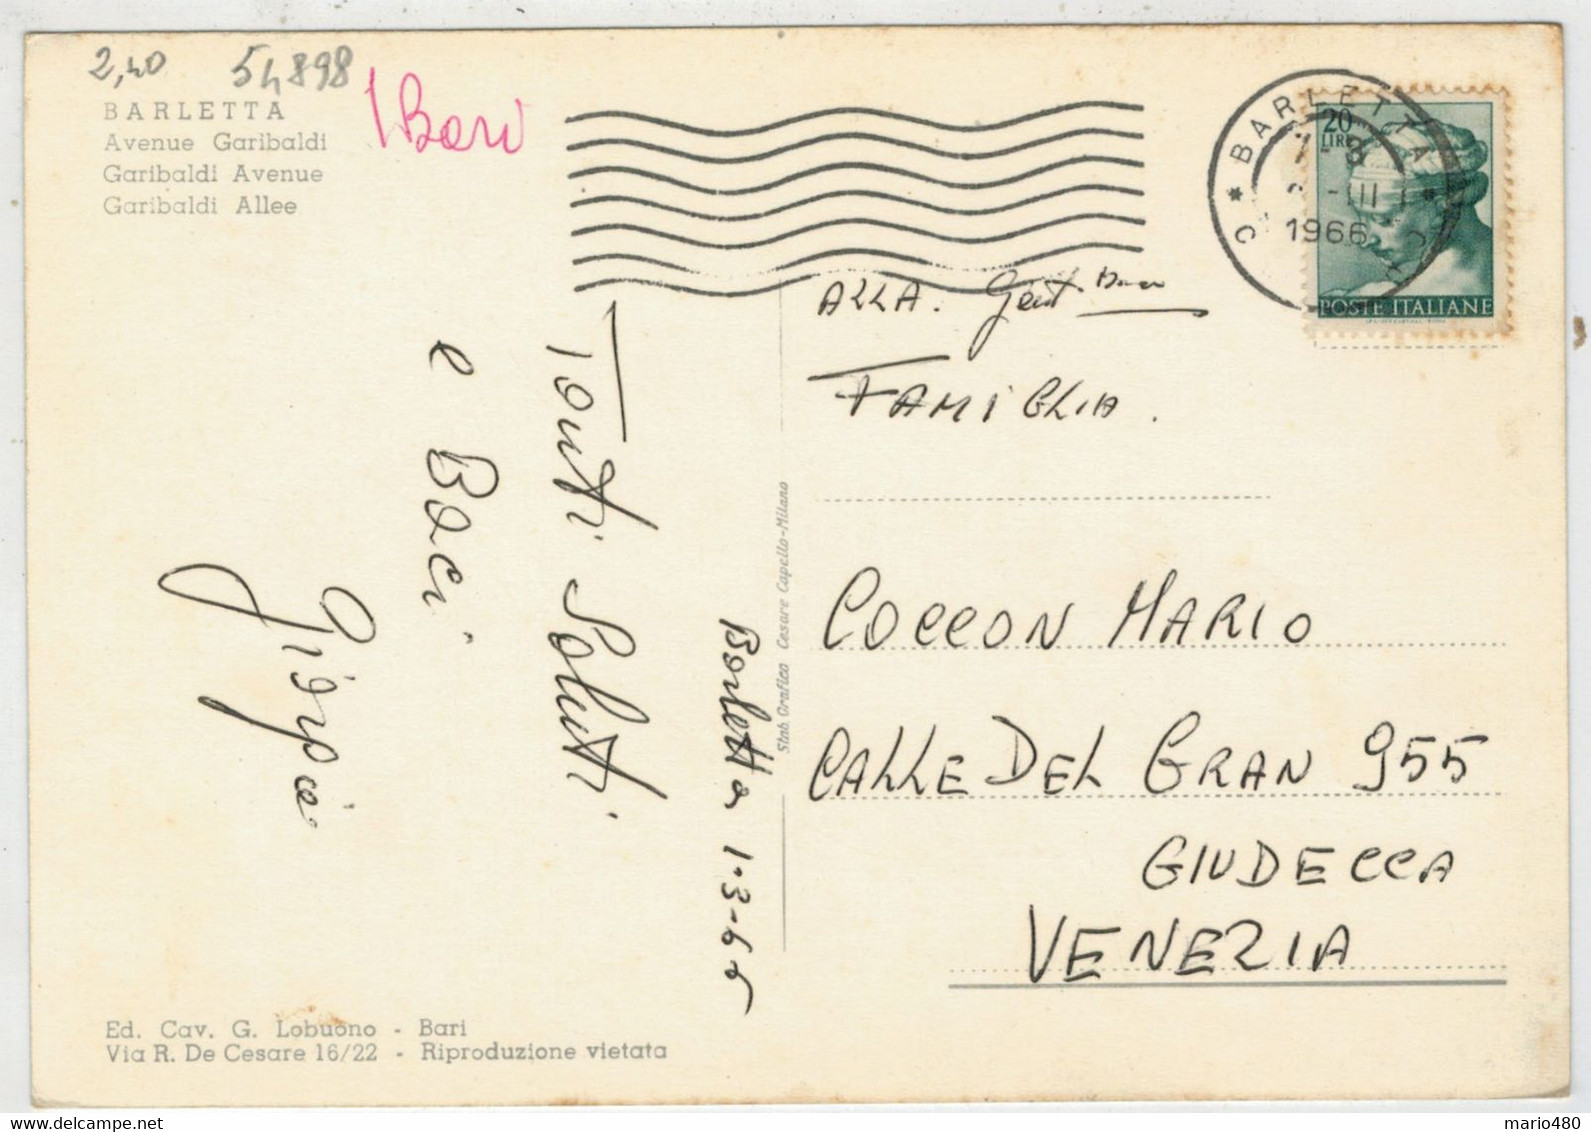 2,40 54898
BARLETTA
Avenue Garibaldi
Garibaldi Avenue
Garibaldi Allee
Bari
BARLETTA
1966
20
LIRE
POSTE ITALIANE
ALLA. Gent
FAMIGLIA.
COCCON MARIO
CALLE DEL GRAN 955
GIUDECCA
VENEZIA
Stab. Grafico Cesare Capello-Milano
Barletta 1-3-66
Tanti Saluti
e Baci
Ed. Cav. G. Lobuono - Bari
Via R. De Cesare 16/22 - Riproduzione vietata
mario480